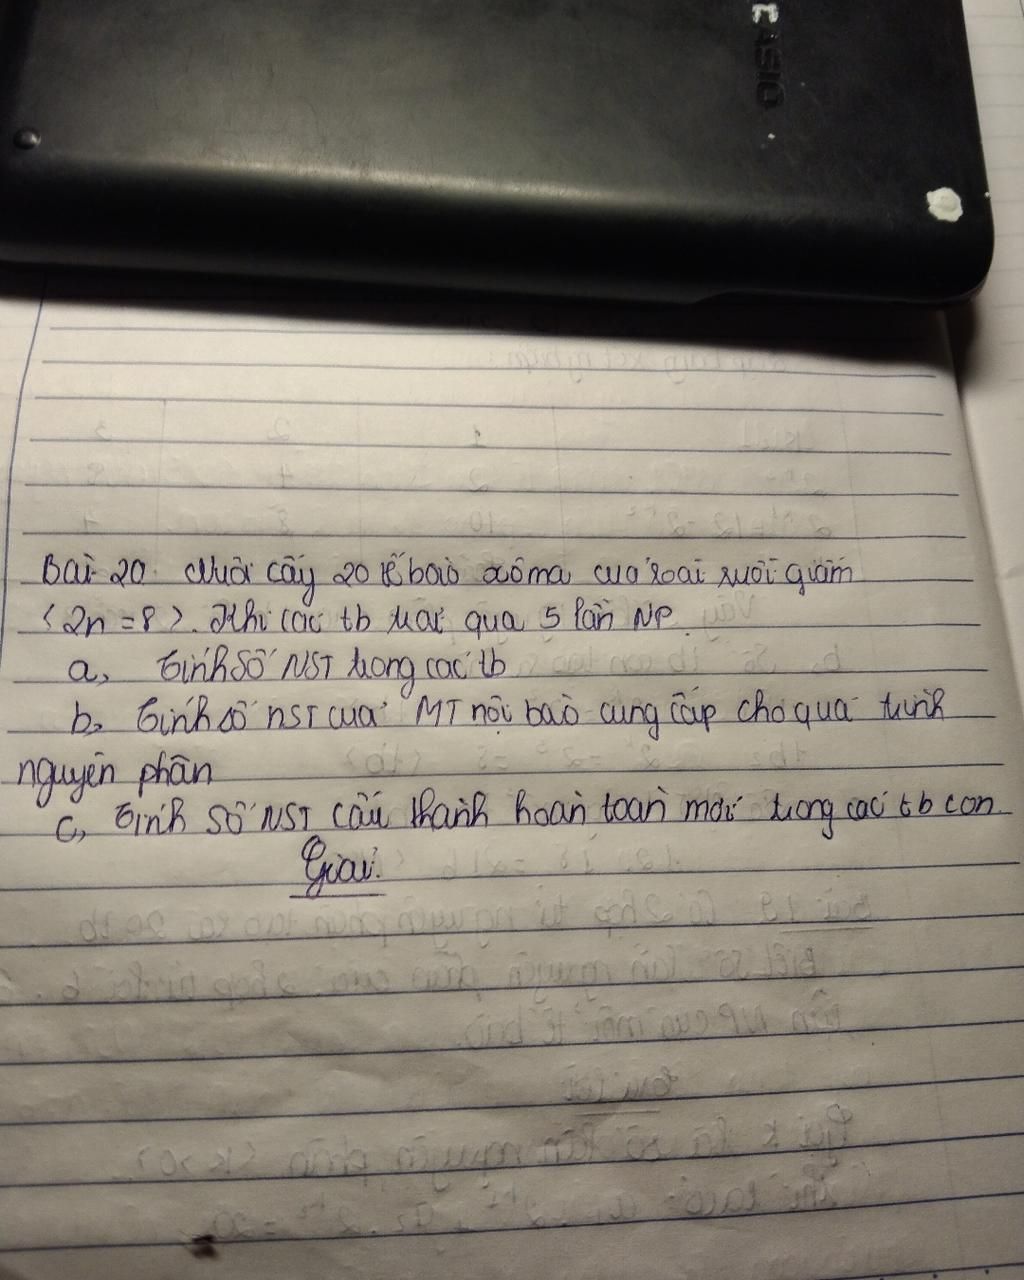 CASIO
Bài 20. Nuôi cấy 20 tế bào xôma của loài ruồi giấm
(2n = 8). Khi các tb trải qua 5 lần NP.
a, Tính số NST trong các tb
b, Tính số nST của MT nội bào cung cấp cho quá trình
nguyên phân
c, Tính số NST cấu thành hoàn toàn mới trong các tb con.
Giải: